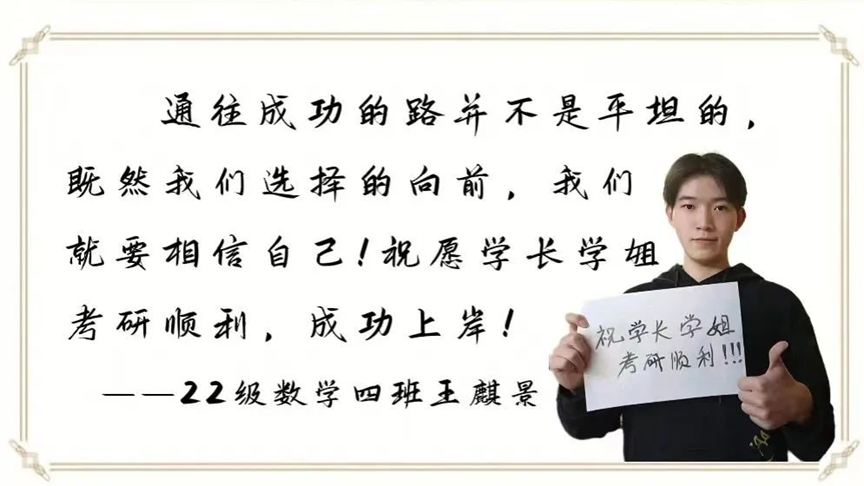 通往成功的路并不是平坦的，
既然我们选择的向前，我们
就要相信自己！祝愿学长学姐
考研顺利，成功上岸！
——22级数学四班王麒景
祝学长学姐
考研顺利!!!